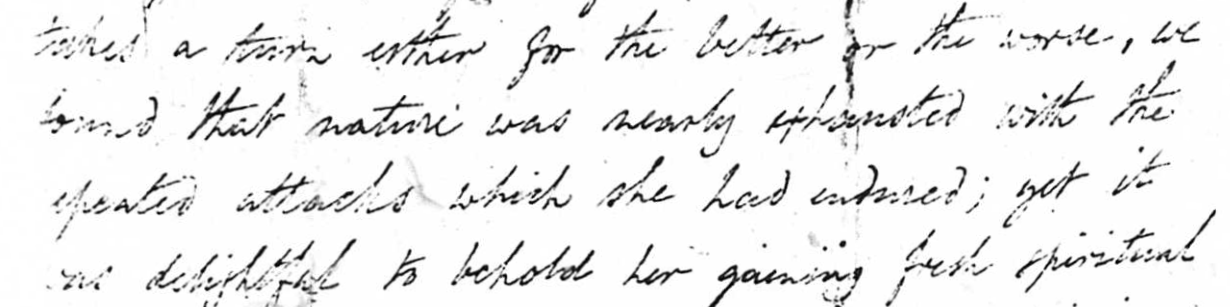 takes a turn either for the better or the worse, we
found that nature was nearly exhausted with the
repeated attacks which she had endured; yet it
was delightful to behold her gaining fresh spiritual